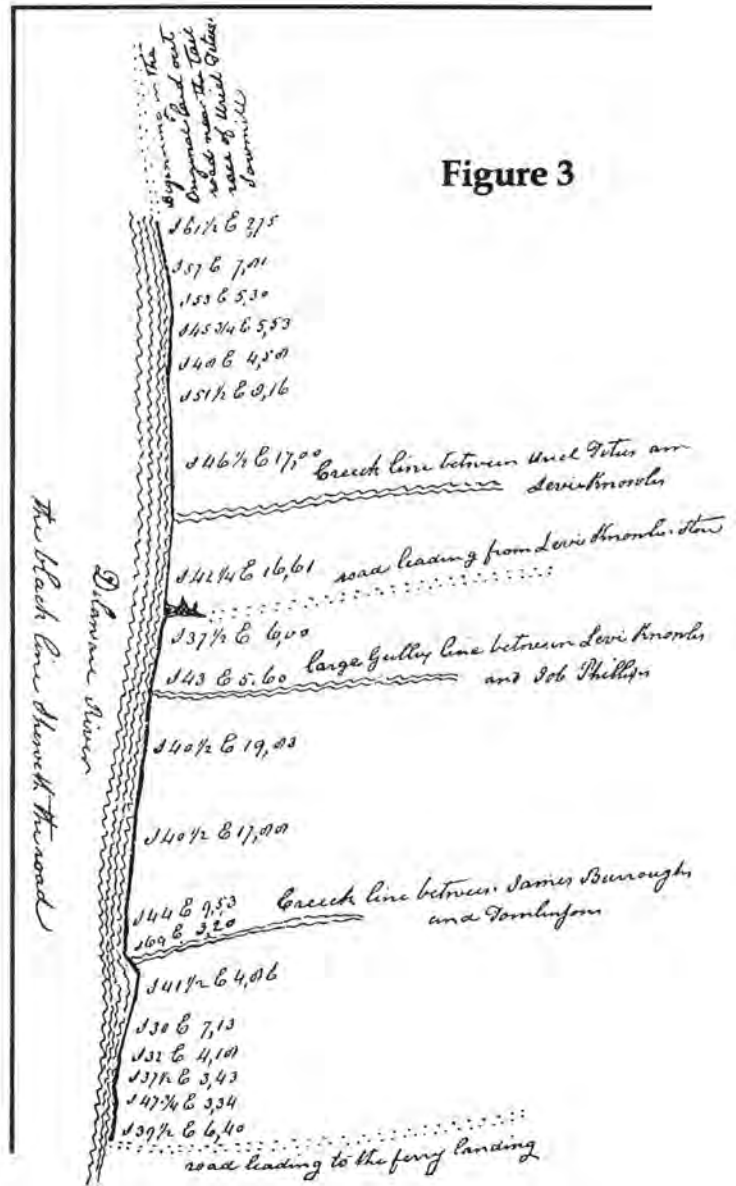 Beginning in the
Original laid out
road near the tail
race of Uriel Titus
Sawmill
Figure 3
S 61 1/2 E 2,75
S 57 E 7,01
S 53 E 5,30
S 45 3/4 E 5,53
S 40 E 4,50
S 51 1/2 E 9,16
S 46 1/2 E 17,00 Creeck line between Uriel Titus an
Levi Knowles
S 42 1/4 E 16,61 road leading from Levi Knowles
S 37 1/2 E 6,00
S 43 E 5.60 large Gulley line between Levi Knowles
and Job Phillips
S 40 1/2 E 19,03
S 40 1/2 E 17,00
S 44 E 9,53 Creeck line between James Burroughs
S 69 E 3,20 and Tomlinsons
S 41 1/2 E 4,06
S 30 E 7,13
S 32 E 4,10
S 37 1/2 E 3,43
S 47 3/4 E 3,34
S 39 1/2 E 6,40
road leading to the ferry landing
Delaware River
the black line sheweth the road